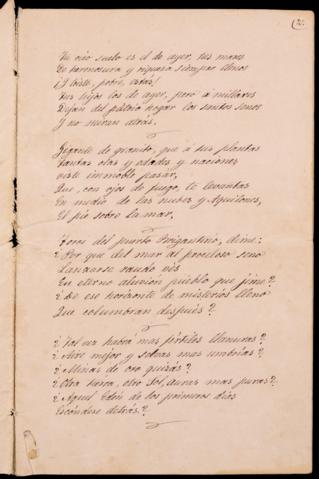 (2.
Tu rico suelo es el de ayer, tus mares
De hermosura y riqueza siempre llenos
¡Y triste, pobre, estás!
Tus hijos los de ayer, pero á millares
Dejan del pátrio hogar los santos senos
Y no miran atrás.
Gigante de granito, que á tus plantas
Tantas olas y edades y naciones
viste immoble pasar,
Que, con ojos de fuego, te levantas
En medio de las nubes y Aquilones,
El pie sobre la mar.
Torre del puerto Brigantino, dime:
¿Por que del mar al proceloso seno
Lanzarse raudo vés
En eterno aluvión pueblo que jime?
¿De ese horizonte de misterios lleno
Que columbran después?
¿Tal vez habrá mas fértiles llanuras?
¿Aire mejor y selvas mas umbrías?
¿Minas de oro quizás?
¿Otra tierra, otro Sol, auras mas puras?
¿Aquel Edén de los primeros días
Escóndese detrás?